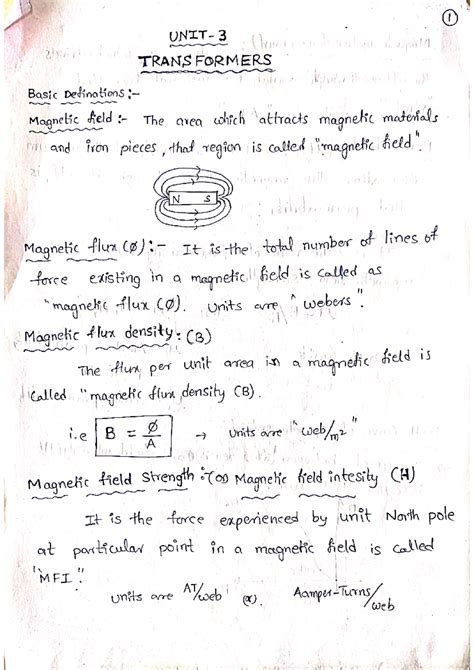 1
UNIT-3
TRANSFORMERS
Basic Definations:-
Magnetic field :- The area which attracts magnetic materials
and iron pieces, that region is called "magnetic field".
N S
Magnetic flux (ϕ):- It is the total number of lines of
force existing in a magnetic field is called as
"magnetic flux (ϕ). Units are "webers".
Magnetic flux density: (B)
The flux per unit area in a magnetic field is
called "magnetic flux density (B).
i.e B = ϕ/A → Units are "web/m²"
Magnetic field strength :- (or) Magnetic field intesity (H)
It is the force experienced by unit North pole
at particular point in a magnetic field is called
"MFI".
Units are AT/web (or). Aamper-Turns/web